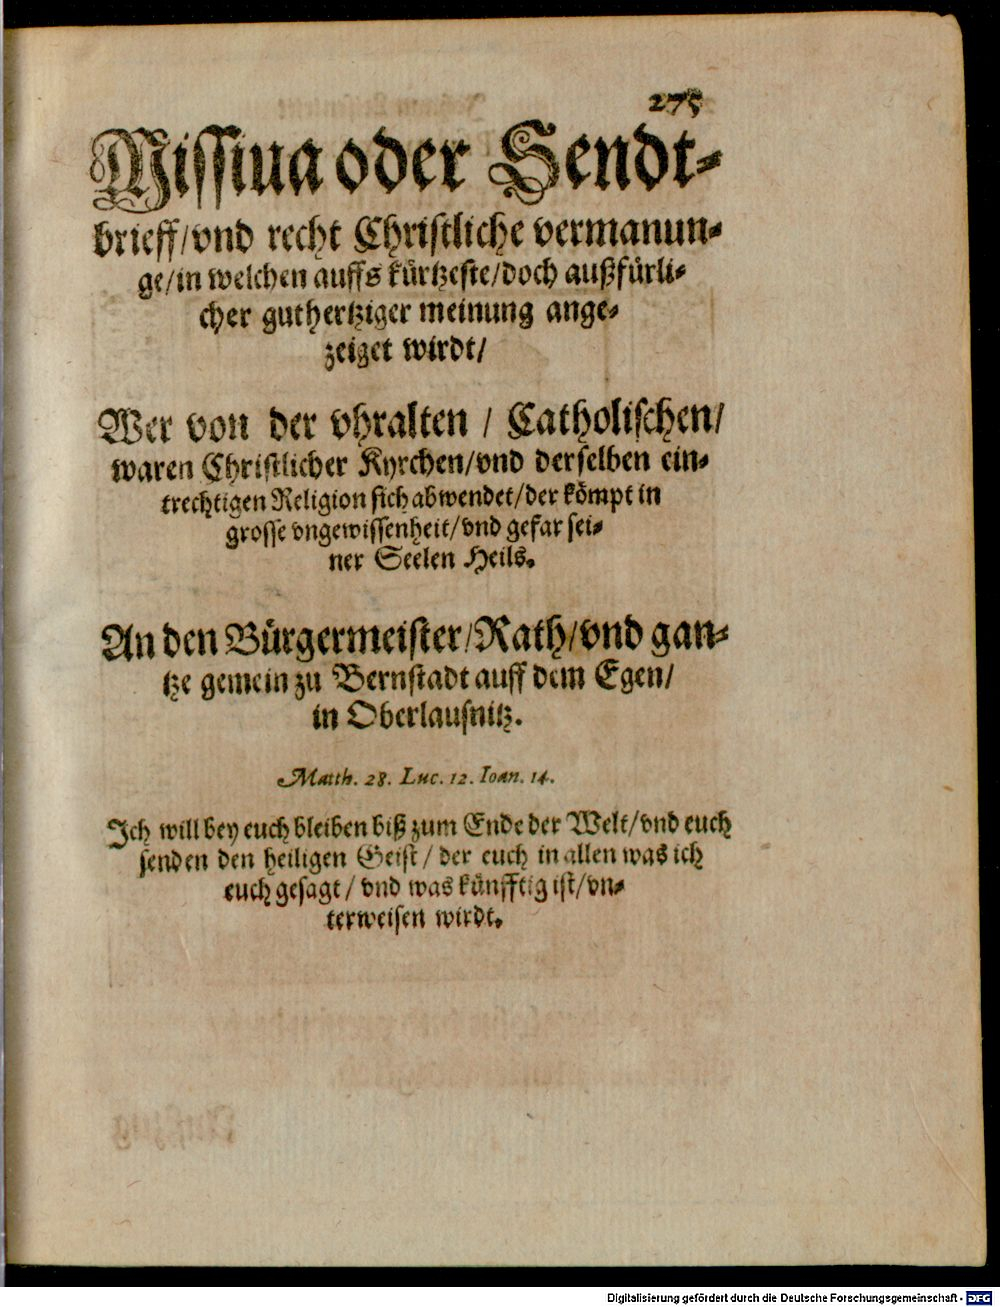 275
Missiua oder Sendt-
brieff/vnd recht Christliche vermanun-
ge/in welchen auffs kürtzeste/doch außfürli-
cher guthertziger meinung ange-
zeiget wirdt/
Wer von der vhralten / Catholischen/
waren Christlicher Kyrchen/vnd derselben ein-
trechtigen Religion sich abwendet/der kömpt in
grosse vngewissenheit/vnd gefar sei-
ner Seelen Heils.
An den Bürgermeister/Rath/vnd gan-
tze gemein zu Bernstadt auff dem Egen/
in Oberlausnitz.
Matth. 28. Luc. 12. Ioan. 14.
Ich will bey euch bleiben biß zum Ende der Welt/vnd euch
senden den heiligen Geist / der euch in allen was ich
euch gesagt / vnd was künfftig ist/vn-
terweisen wirdt.
Digitalisierung gefördert durch die Deutsche Forschungsgemeinschaft - DFG